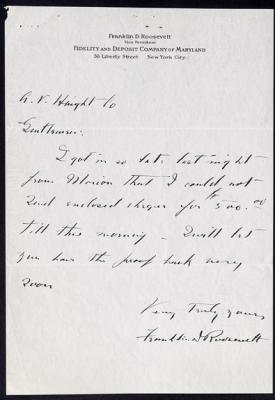 Franklin D. Roosevelt
Vice President
Fidelity and Deposit Company of Maryland
55 Liberty Street New York City
A. V. Haight Co
Gentlemen:
I got in so late last night
from Marion that I could not
send enclosed cheque for $500.00
till this morning - I will let
you have the proof back very
soon
Very truly yours,
Franklin D Roosevelt